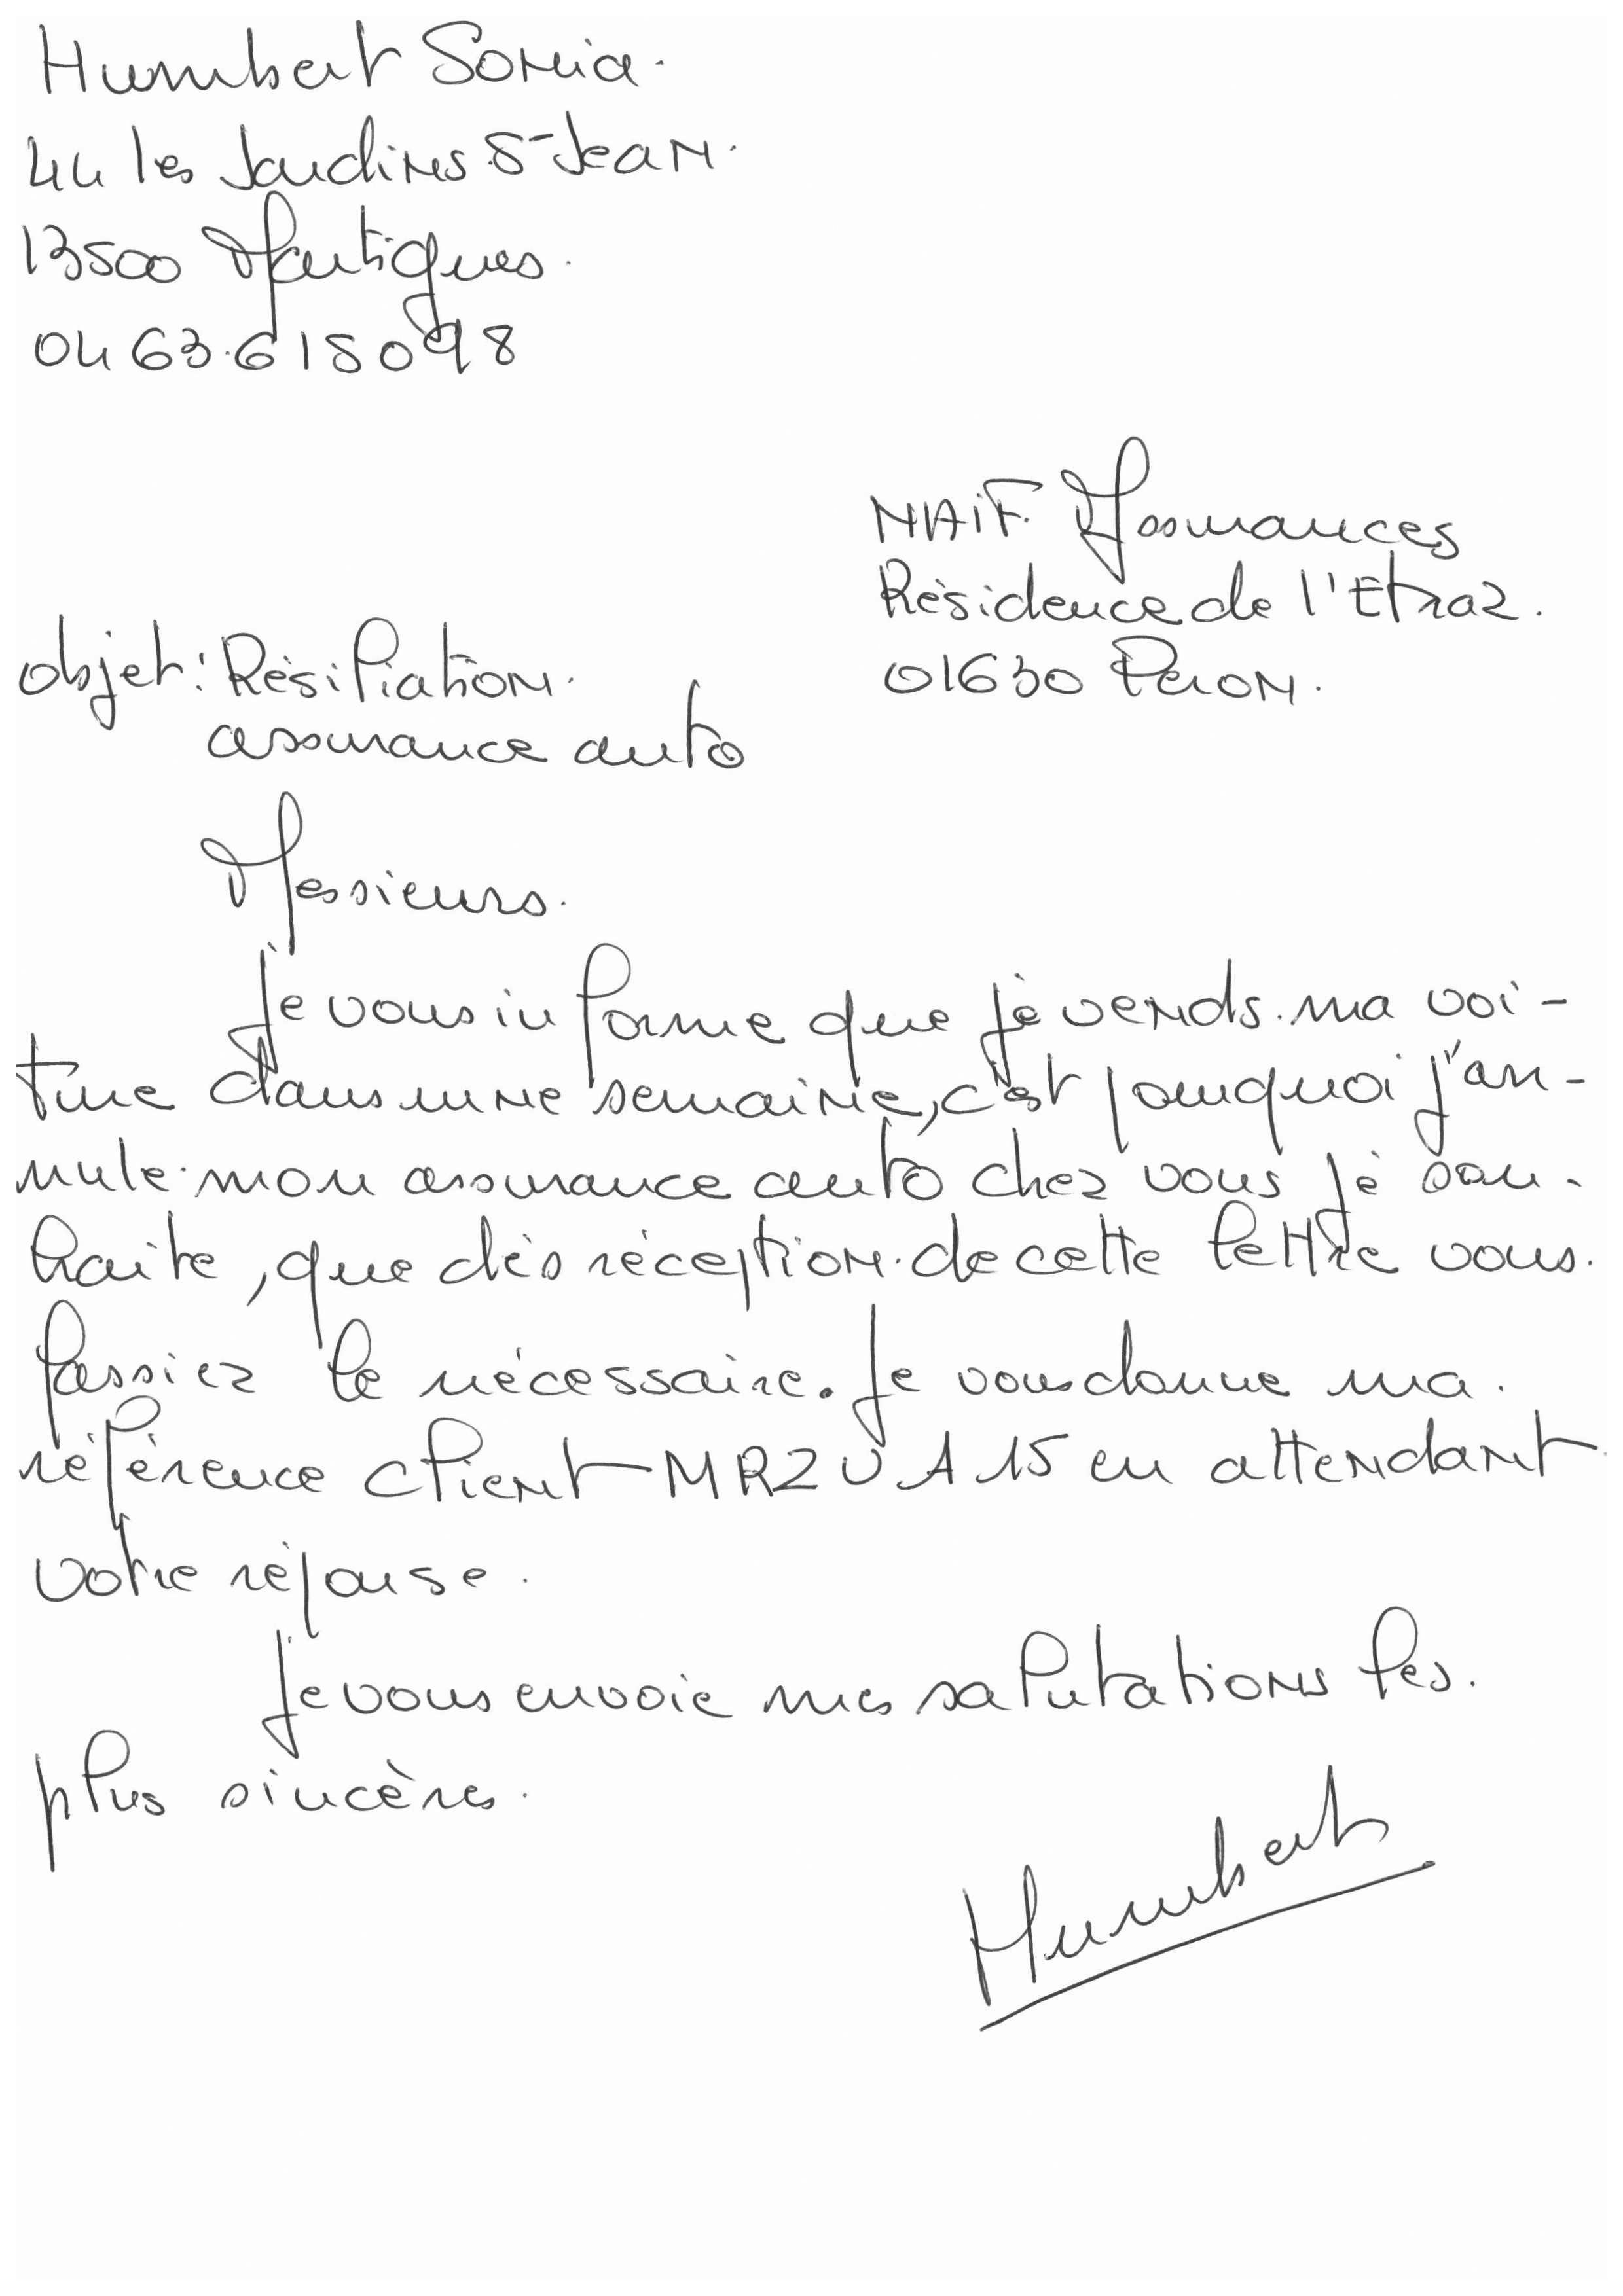 Humbert Sonia.
44 les Jardins St Jean.
13500 Martigues.
04 63.61 50 98
MAiF. Assurances
Résidence de l'Etraz.
01630 Peron.
objet: Résiliation.
assurance auto
Messieurs.
Je vous informe que je vends. ma voi-
ture dans une semaine, c'est pourquoi j'an-
nule. mon assurance auto chez vous je sou-
haite, que dès réception. de cette lettre vous.
fassiez le nécessaire. Je vous donne ma.
référence client MRZUA15 en attendant
votre réponse.
Je vous envoie mes salutations les.
plus sincères.
Humbert